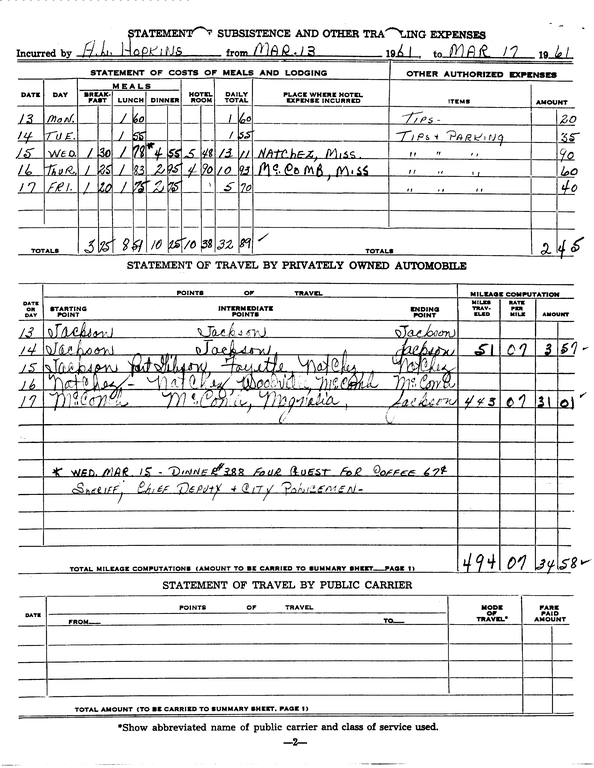 STATEMENT SUBSISTENCE AND OTHER TRA LING EXPENSES
Incurred by A.L. HOPKINS from MAR. 13 1961, to MAR 17 1961
STATEMENT OF COSTS OF MEALS AND LODGING OTHER AUTHORIZED EXPENSES
DATE DAY MEALS BREAK-FAST LUNCH DINNER HOTEL ROOM DAILY TOTAL PLACE WHERE HOTEL EXPENSE INCURRED ITEMS AMOUNT
13 MON. 1 60 1 60 TIPS- 20
14 TUE. 1 55 1 55 TIPS & PARKING 35
15 WED. 1 30 1 78 *4 55 5 48 13 11 NATCHEZ, MISS. " " " 90
16 THUR. 1 25 1 83 2 95 4 90 10 93 McCOMB, MISS " " " 60
17 FRI. 1 20 1 75 2 75 5 70 " " " 40
TOTALS 3 75 8 51 10 25 10 38 32 89 ✓ TOTALS 2 45
STATEMENT OF TRAVEL BY PRIVATELY OWNED AUTOMOBILE
DATE OR DAY POINTS OF TRAVEL MILEAGE COMPUTATION
STARTING POINT INTERMEDIATE POINTS ENDING POINT MILES TRAV-ELED RATE PER MILE AMOUNT
13 Jackson Jackson Jackson
14 Jackson Jackson Jackson 51 07 3 57 ✓
15 Jackson Port Gibson, Fayette, Natchez Natchez
16 Natchez - Natchez, Woodville, McComb McComb
17 McComb McComb, Magnolia, Jackson 443 07 31 01 ✓
* WED. MAR. 15 - DINNER $3.88 FOUR GUEST FOR COFFEE 67¢
SHERIFF, CHIEF DEPUTY & CITY POLICEMEN-
TOTAL MILEAGE COMPUTATIONS (AMOUNT TO BE CARRIED TO SUMMARY SHEET PAGE 1) 494 07 34 58 ✓
STATEMENT OF TRAVEL BY PUBLIC CARRIER
DATE POINTS OF TRAVEL MODE OF TRAVEL* FARE PAID AMOUNT
FROM TO
TOTAL AMOUNT (TO BE CARRIED TO SUMMARY SHEET, PAGE 1)
*Show abbreviated name of public carrier and class of service used.
—2—